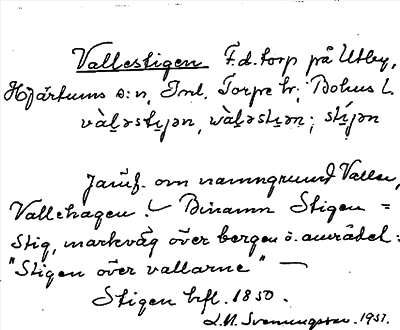 Vallestigen F.d. torp på Utby,
Hjärtums s:n, Inl. Torpe hr; Bohus l.
vàl̥əstɩjən, wàl̥əstɩən; stíjən
Jämf. om namngrund Vallen,
Vallehagen! Binamn Stigen =
Stig, markväg över bergen o. området:
"Stigen över vallarne" —
Stigen hfl. 1850.
Svenungsson. 1951.